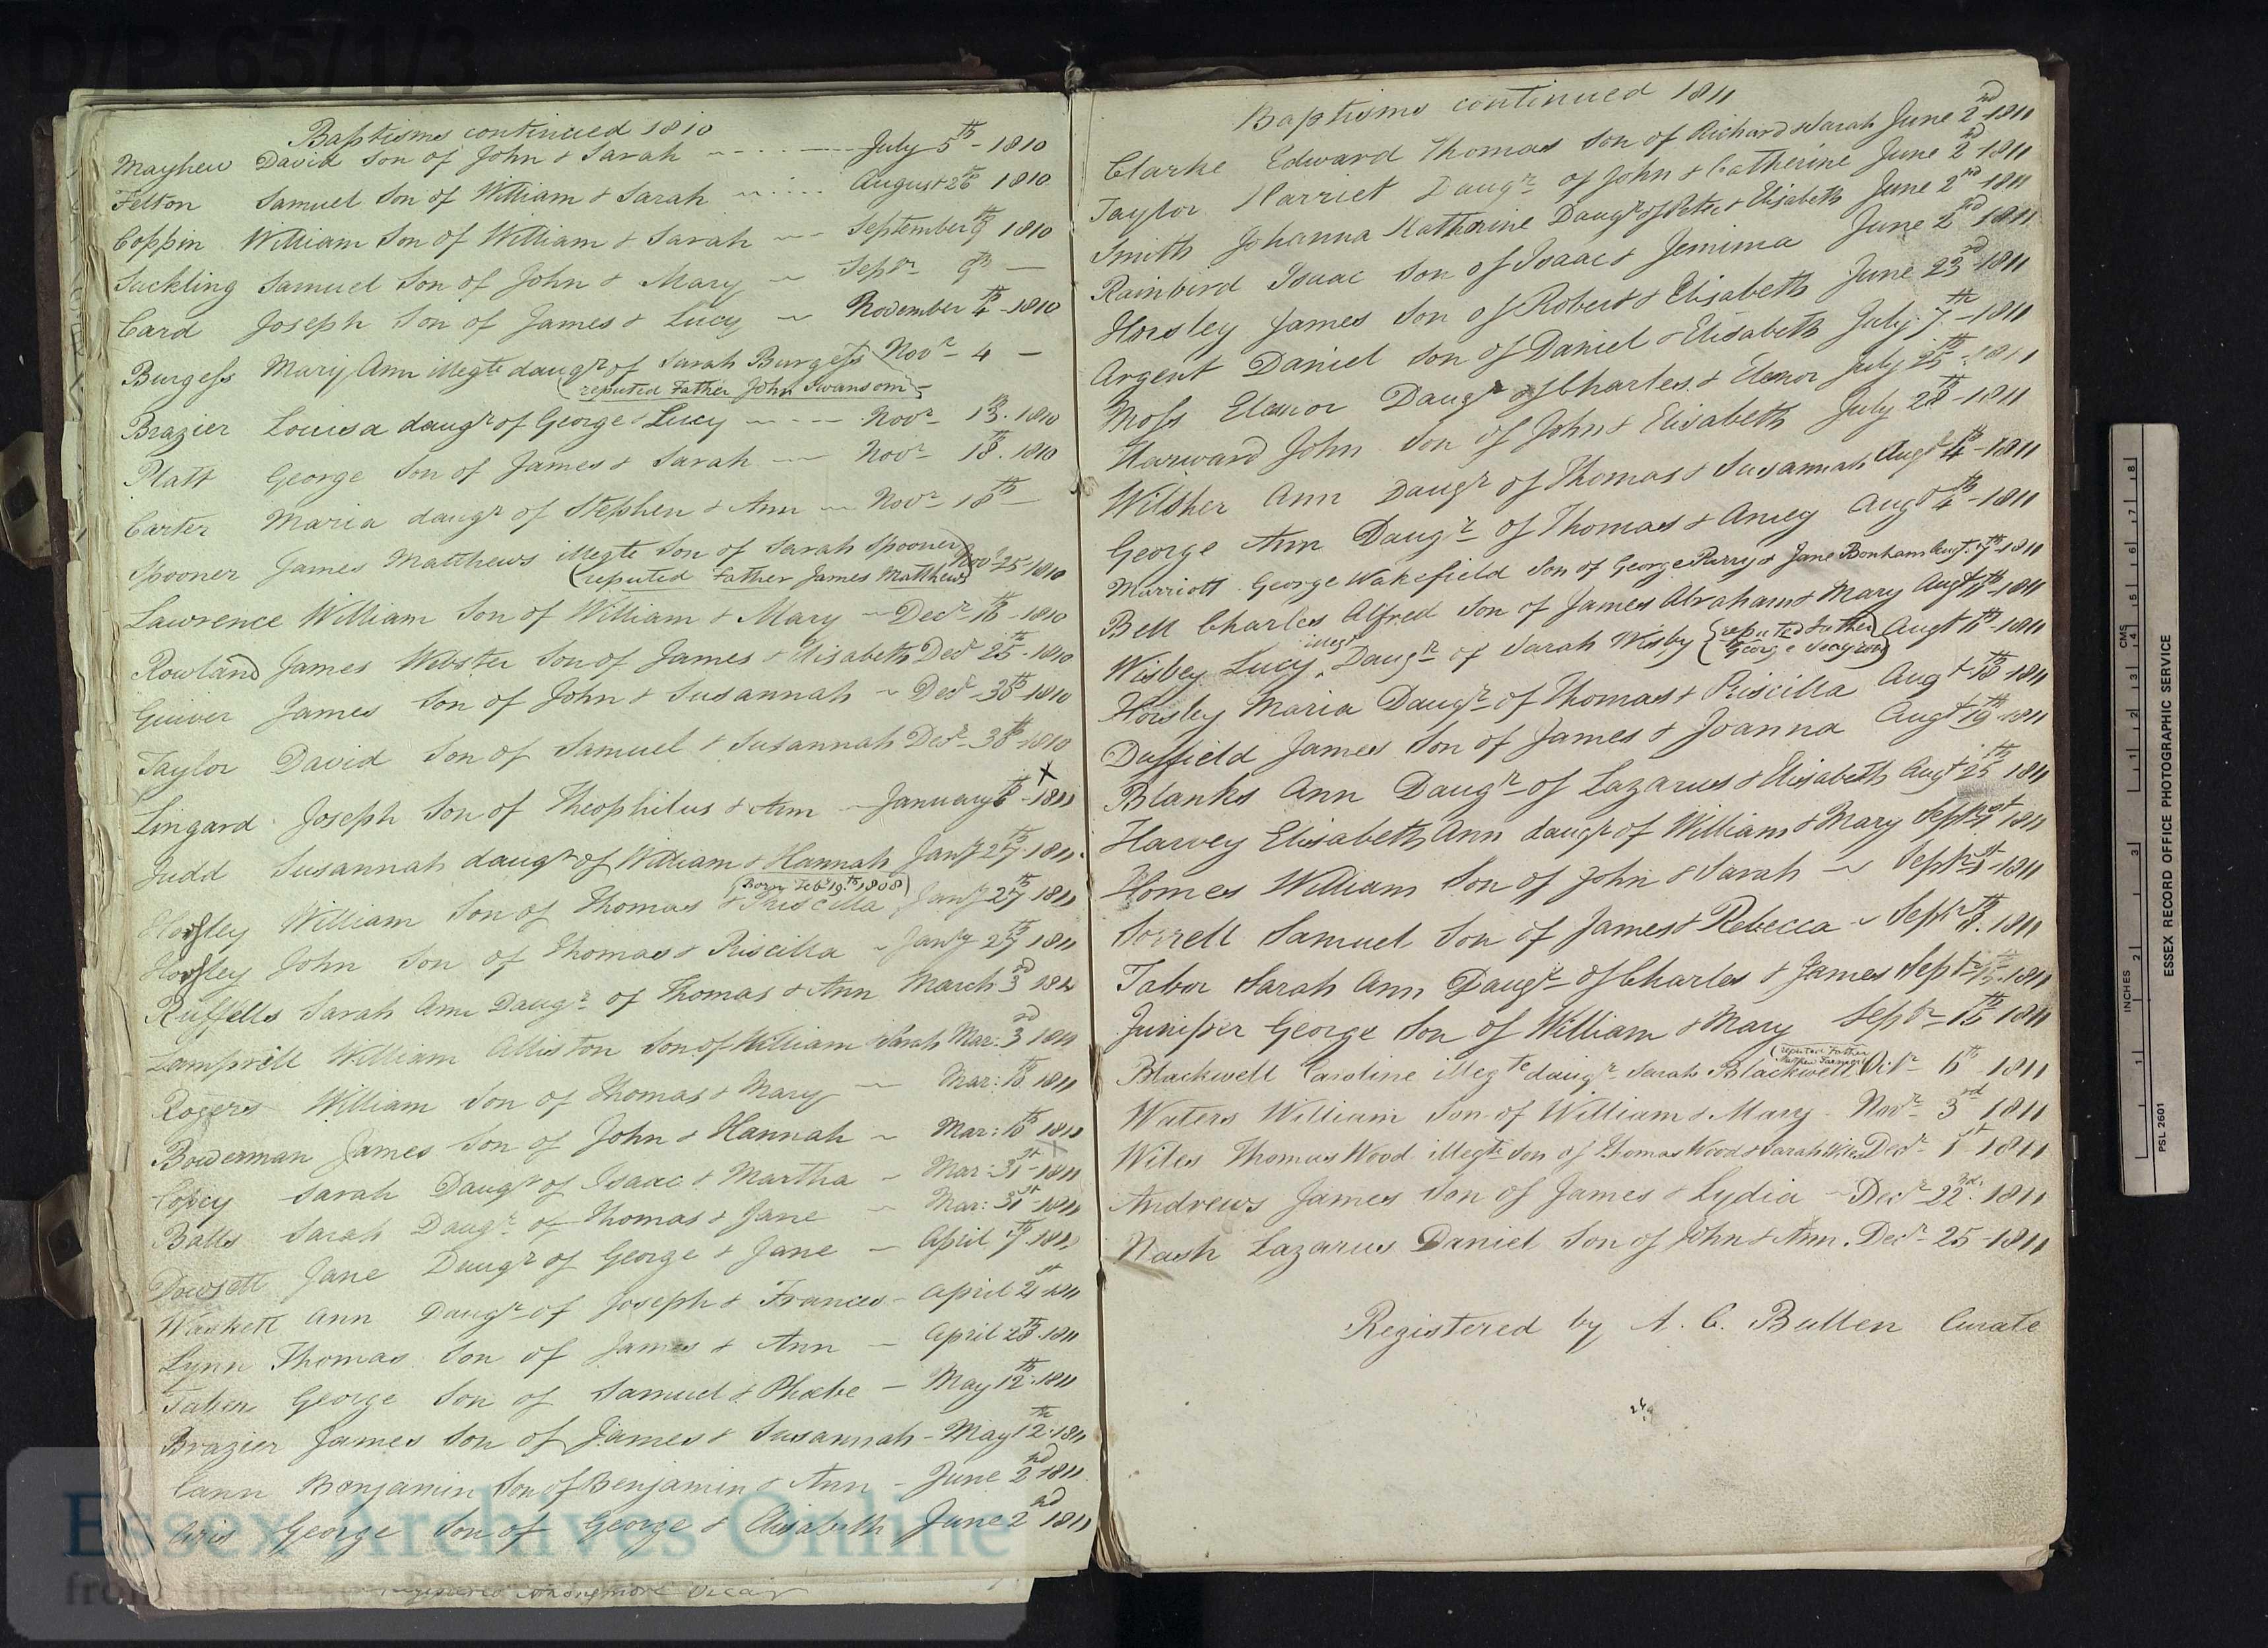 D/P 65/1/3
Baptisms continued 1810
Mayhew David Son of John & Sarah July 5th - 1810
Felton Samuel Son of William & Sarah August 26th 1810
Coppin William Son of William & Sarah September 9th 1810
Suckling Samuel Son of John & Mary Septr 9th
Card Joseph Son of James & Lucy November 4th 1810
Burgess Mary Ann illegte daugr of Sarah Burgess Novr 4
(reputed Father John Swansom)
Brazier Louisa daugr of George & Lucy Novr 13th 1810
Platt George Son of James & Sarah Novr 18th 1810
Carter Maria daugr of Stephen & Ann Novr 18th
Spooner James Matthews illegte Son of Sarah Spooner Novr 25 1810
(reputed Father James Matthews)
Lawrence William Son of William & Mary Decr 16th 1810
Rowland James Webster Son of James & Elisabeth Decr 25th 1810
Guiver James Son of John & Susannah Decr 30th 1810
Taylor David Son of Samuel & Susannah Decr 30th 1810
Lingard Joseph Son of Theophilus & Ann January 6th 1811
Judd Susannah daugr of William & Hannah Jany 27th 1811
(Born Feby 19th 1808)
Horsley William Son of Thomas & Priscilla Jany 27 1811
Horsley John Son of Thomas & Priscilla Jany 27th 1811
Ruffells Sarah Ann Daugr of Thomas & Ann March 3rd 1811
William Alliston Son of William & Sarah Mar: 3rd 1811
Rogers William Son of Thomas & Mary Mar: 10th 1811
Bowerman James Son of John & Hannah Mar: 10th 1811
Copey Sarah Daugr of Isaac & Martha Mar: 31st 1811
Balls Sarah Daugr of Thomas & Jane Mar: 31st 1811
Dowsett Jane Daugr of George & Jane April 7th 1811
Waskett Ann Daugr of Joseph & Frances April 21st 1811
Lynn Thomas Son of James & Ann April 28th 1811
Taber George Son of Samuel & Phoebe May 12th 1811
Brazier James Son of James & Susannah May 12th 1811
Cann Benjamin Son of Benjamin & Ann June 2nd 1811
George Son of George & Elisabeth June 2nd 1811
Vicar
Essex Archives Online
Baptisms continued 1811
Clarke Edward Thomas Son of Richard & Sarah June 2nd 1811
Taylor Harriet Daugr of John & Catherine June 2nd 1811
Smith Johanna Katherine Daugr of Peter & Elisabeth June 2nd 1811
Rainbird Isaac Son of Isaac & Jemima June 2nd 1811
Horsley James Son of Robert & Elisabeth June 23rd 1811
Argent Daniel Son of Daniel & Elisabeth July 7th 1811
Moss Elenor Daugr of Charles & Elenor July 25th 1811
Harward John Son of John & Elisabeth July 28th 1811
Wilsher Ann Daugr of Thomas & Susannah Augt 4th 1811
George Ann Daugr of Thomas & Amey Augt 4th 1811
Marriott George Wakefield Son of George Parry & Jane Bonham Augt 7th 1811
Bell Charles Alfred Son of James Abraham & Mary Augt 11th 1811
Wisbey Lucy illegt Daugr of Sarah Wisby (reputed Father Augt 11th 1811
George Seagrave)
Horsley Maria Daugr of Thomas & Priscilla Augt 18th 1811
Duffield James Son of James & Joanna Augt 19th 1811
Blanks Ann Daugr of Lazarus & Elisabeth Augt 25th 1811
Harvey Elisabeth Ann daugr of William & Mary Septr 1st 1811
Homes William Son of John & Sarah Septr 1st 1811
Sorrell Samuel Son of James & Rebecca Septr 8th 1811
Tabor Sarah Ann Daugr of Charles & James Septr 15th 1811
Juniper George Son of William & Mary Septr 15th 1811
(reputed Father
Blackwell Caroline illegte daugr Sarah Blackwell Octr 6th 1811
Waters William Son of William & Mary Novr 3rd 1811
Wiles Thomas Wood illegte Son of Thomas Wood & Sarah Wiles Decr 1st 1811
Andrews James Son of James & Lydia Decr 22nd 1811
Nash Lazarus Daniel Son of John & Ann Decr 25 1811
Registered by A. C. Bullen Curate
INCHES
1
2
3
CMS
1
2
3
4
5
6
7
8
ESSEX RECORD OFFICE PHOTOGRAPHIC SERVICE
PSL 2601